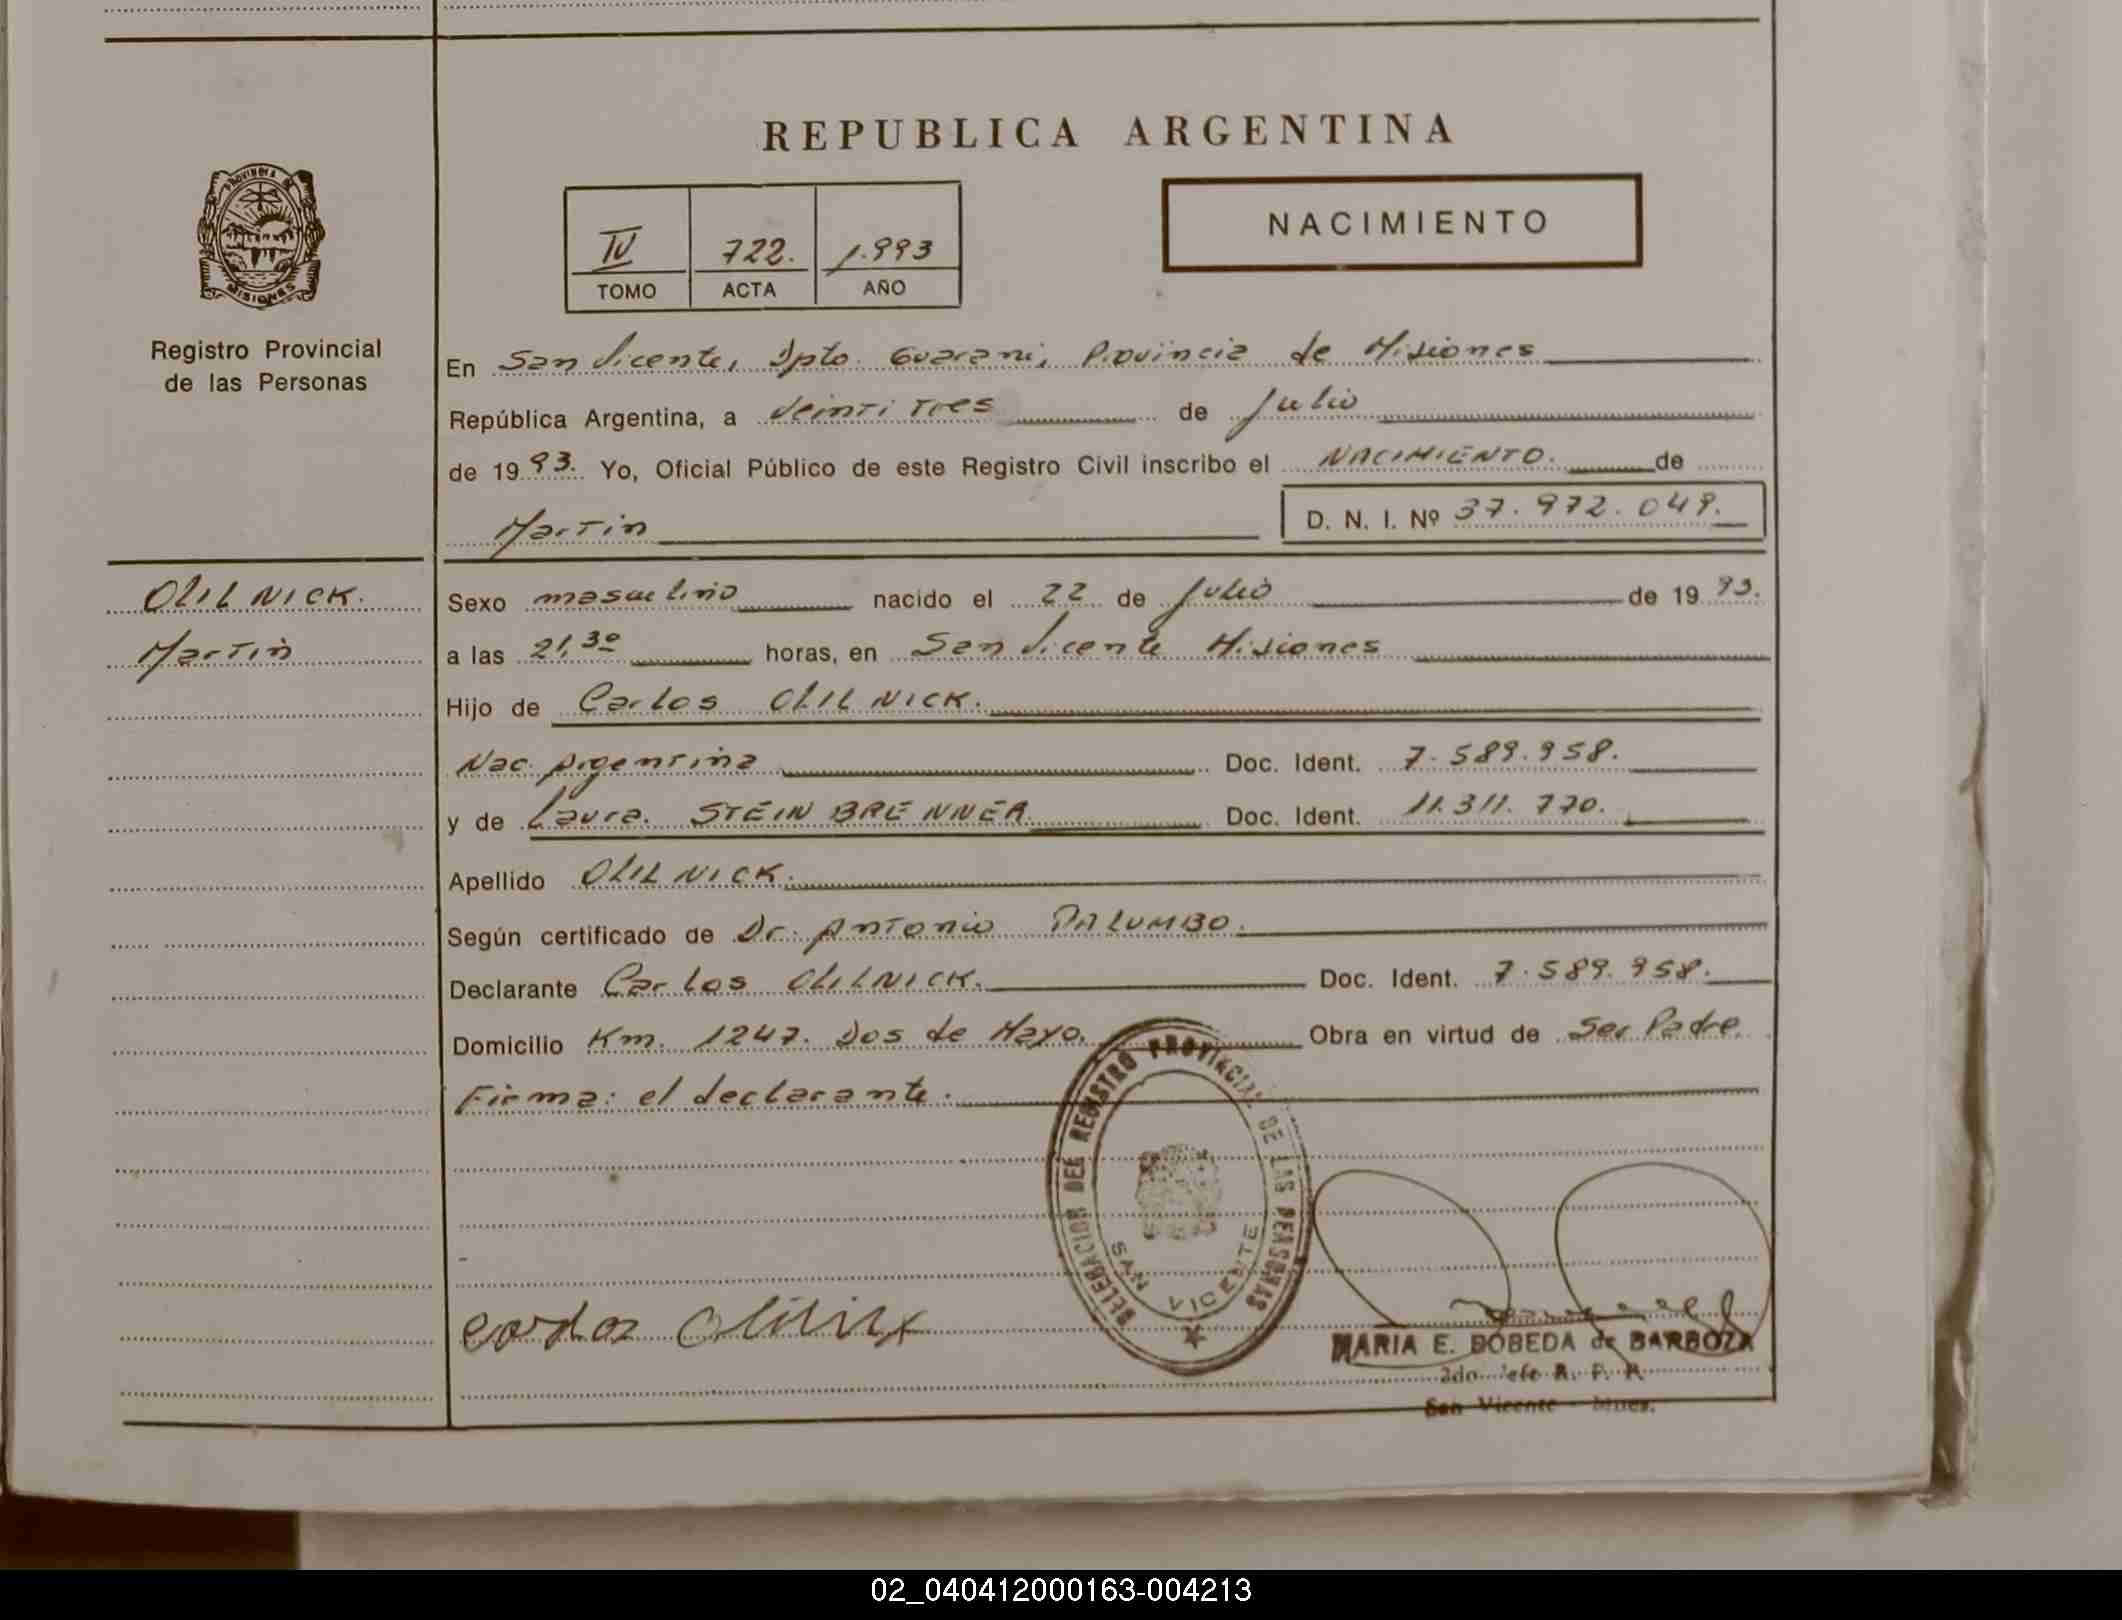 REPUBLICA ARGENTINA
PROVINCIA DE
MISIONES
Registro Provincial
de las Personas
IV 722. 1.993
TOMO ACTA AÑO
NACIMIENTO
En San Vicente, Dpto. Guarani, Provincia de Misiones
República Argentina, a Veinti Tres de Julio
de 1993. Yo, Oficial Público de este Registro Civil inscribo el NACIMIENTO. de
Martin D. N. I. Nº 37.972.049.
OLILNICK.
Martin
Sexo masculino nacido el 22 de Julio de 1993.
a las 21,30 horas, en San Vicente Misiones
Hijo de Carlos OLILNICK.
Nac. Argentina Doc. Ident. 7.589.958.
y de Laura. STEINBRENNER Doc. Ident. 11.311.770.
Apellido OLILNICK.
Según certificado de Dr. Antonio PALUMBO.
Declarante Carlos OLILNICK. Doc. Ident. 7.589.958.
Domicilio Km. 1247. Dos de Mayo. Obra en virtud de Ser Padre.
Firma: el declarante.
DELEGACION DEL REGISTRO PROVINCIAL DE LAS PERSONAS
SAN VICENTE
MARIA E. BOBEDA de BARBOZA
2do. Jefe R. P. P.
San Vicente - Mnes.
02_040412000163-004213